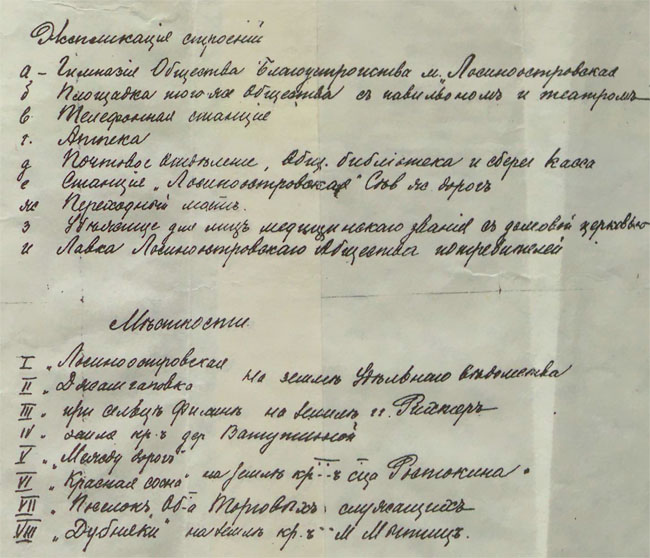 Экспликація строеній
а – Гимназія Общества Благоустройства м. „Лосиноостровская
б Площадка того же общества съ павильономъ и театромъ
в Телефонная станція
г. Аптека
д Почтовое отдѣленіе, Общ. библіотека и сберег касса
е Станція „Лосиноостровская" Сѣв жс дорогъ
ж Переходной мостъ.
з Убѣжище для лицъ медицинскаго званія съ домовой церковью
и Лавка Лосиноостровскаго Общества потребителей
Мѣстности
I „Лосиноостровская
II „Джамгаровка на землѣ Удѣльнаго вѣдомства
III „при сельцѣ на землѣ гг. Рихтеръ
IV земля кр-ъ дер Ватутиной
V „Между дорогъ"
VI „Красная сосна" на землѣ кр-ъ сца Ростокина
VII „Поселокъ Об-а Торговыхъ служащихъ
VIII „Дубняки" на земл. кр-ъ М Мытищъ.